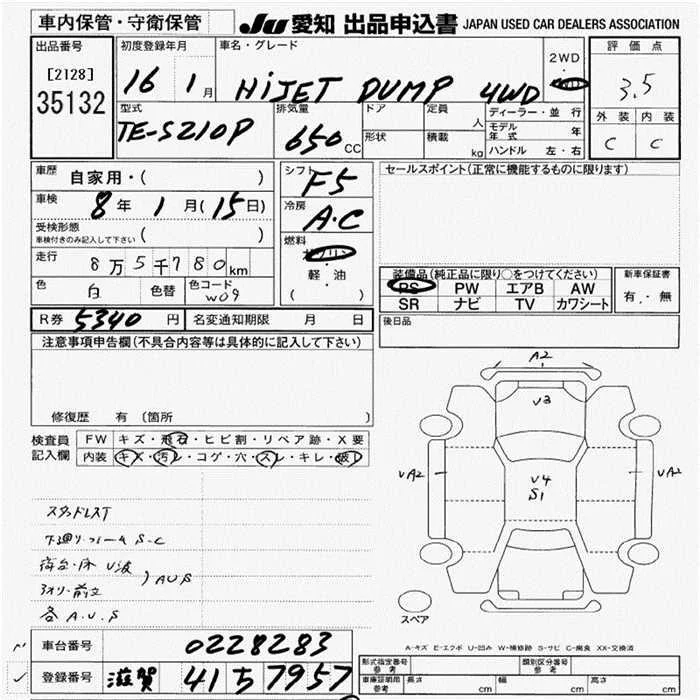 車内保管・守衛保管
JU 愛知 出品申込書 JAPAN USED CAR DEALERS ASSOCIATION
出品番号
[2128]
35132
初度登録年月
16 1 月
車名・グレード
HiJET DUMP 4WD
2WD
・
評価点
3.5
外装 内装
C C
型式
TE-S210P
排気量
650 CC
ドア
形状
定員
人
積載
kg
ディーラー・並行
モデル年式 年
ハンドル 左・右
車歴 自家用・( )
車検 8 年 1 月(15日)
受検形態
車検付きのみ記入して下さい ( )
走行 8万5千780km
色 白 色替 色コード W09
シフト F5
冷房 A・C
燃料
ガソリン
・
軽油
( )
セールスポイント(正常に機能するものに限ります)
装備品(純正品に限り○をつけてください)
PS PW エアB AW
SR ナビ TV カワシート
新車保証書
有・無
R券 5340 円 名変通知期限 月 日
後日品
注意事項申告欄(不具合内容等は具体的に記入して下さい)
修復歴 有 〔箇所 〕
検査員記入欄
FW キズ・飛石・ヒビ割・リペア跡・X要
内装 キズ・汚レ・コゲ・穴・スレ・キレ・破レ
スタッドレスT
下廻り・フレーム S-C
荷台・床 U波
アオリ・前立 ) AUS
各 A.U.S
A2
V3
VA2
V4
S1
VA2
スペア
A-キズ E-エクボ U-凹み W-補修跡 S-サビ C-腐食 XX-交換済
車台番号 0228283
登録番号 滋賀 41 ち 7957
形式指定番号
参考
類別区分番号
参考
車庫証明用
参考
長さ cm 幅 cm 高さ cm